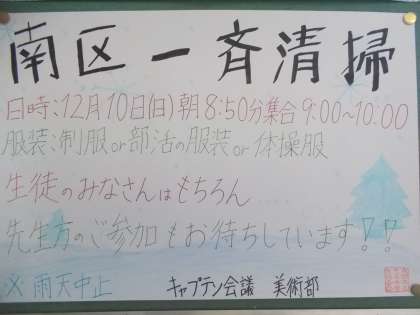 南区一斉清掃
日時:12月10日(日)朝8:50分集合9:00~10:00
服装:制服or部活の服装or体操服
生徒のみなさんはもちろん
先生方のご参加もお待ちしています!!
※雨天中止 キャプテン会議 美術部